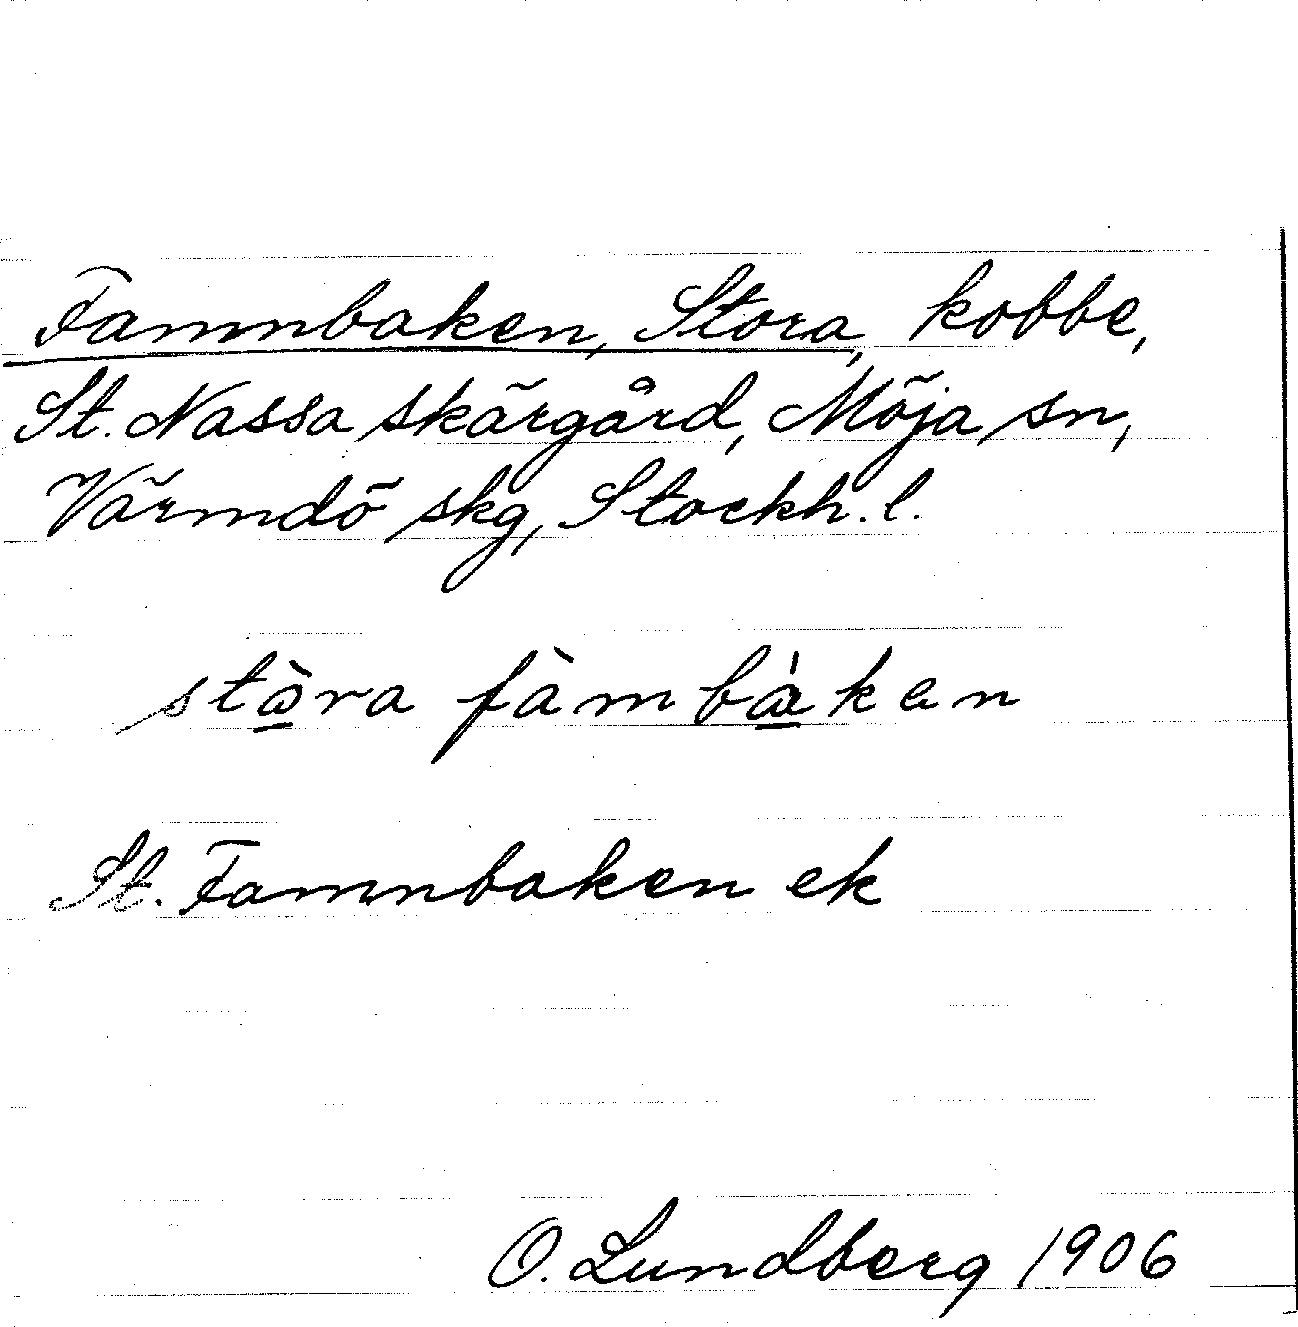 Famnbaken, Stora, kobbe,
St. Nassa skärgård, Möja sn,
Värmdö skg, Stockh. l.
stòra fàmbáken
St. Famnbaken ek
O. Lundberg 1906